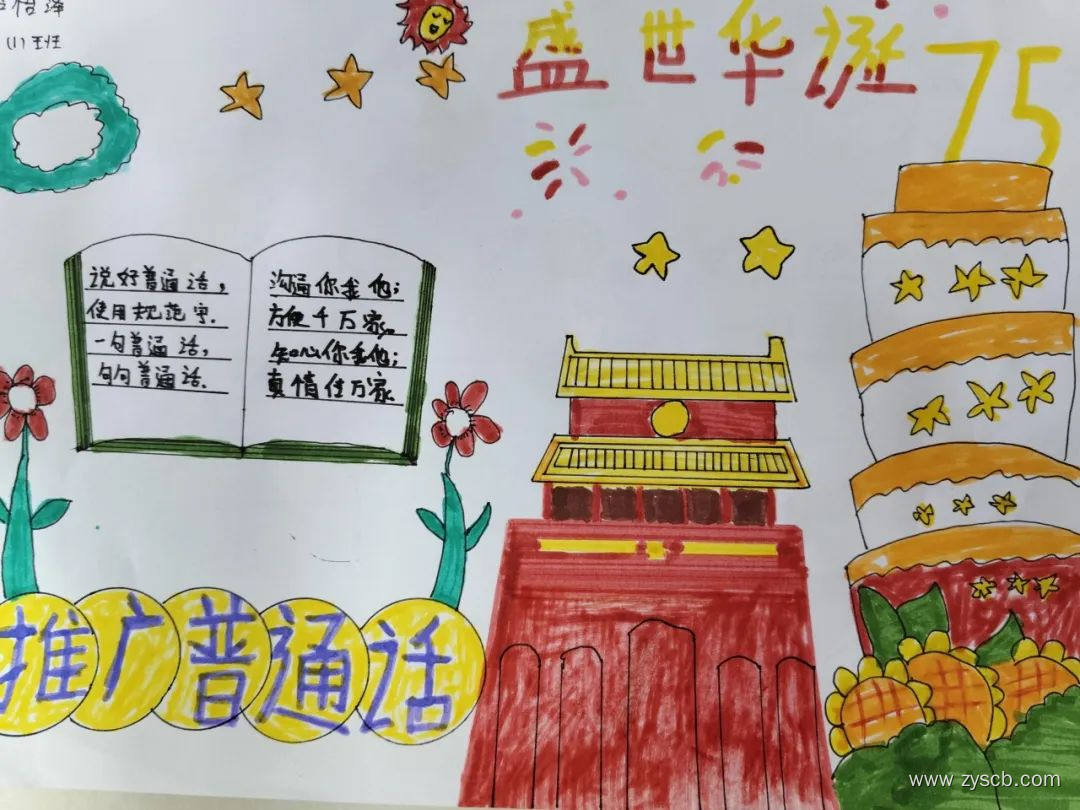 (1)班
盛世华诞 75
说好普通话，
使用规范字．
一句普通话，
句句普通话．
沟通你我他；
方便千万家。
知心你我他；
真情住万家．
推广普通话
www.zyscb.com